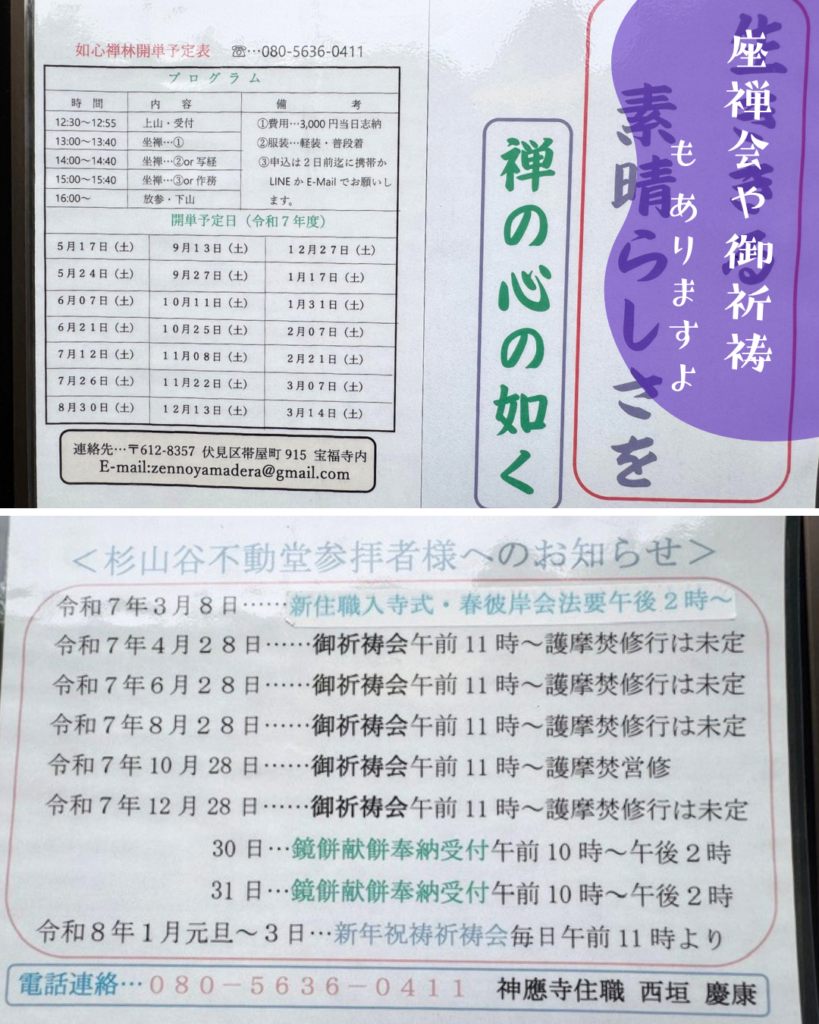 如心禅林開単予定表 ☏…080-5636-0411
プログラム
時間 内容 備考
12:30〜12:55 上山・受付 ①費用…3,000円当日志納
13:00〜13:40 坐禅…① ②服装…軽装・普段着
14:00〜14:40 坐禅…②or写経 ③申込は2日前迄に携帯か
15:00〜15:40 坐禅…③or作務 LINEかE-Mailでお願いし
16:00〜 放参・下山 ます。
開単予定日（令和7年度）
5月17日（土） 9月13日（土） 12月27日（土）
5月24日（土） 9月27日（土） 1月17日（土）
6月07日（土） 10月11日（土） 1月31日（土）
6月21日（土） 10月25日（土） 2月07日（土）
7月12日（土） 11月08日（土） 2月21日（土）
7月26日（土） 11月22日（土） 3月07日（土）
8月30日（土） 12月13日（土） 3月14日（土）
連絡先…〒612-8357 伏見区帯屋町915 宝福寺内
E-mail:zennoyamadera@gmail.com
座禅会や御祈祷
もありますよ
生きる
素晴らしさを
禅の心の如く
＜杉山谷不動堂参拝者様へのお知らせ＞
令和7年3月8日……新住職入寺式・春彼岸会法要午後2時〜
令和7年4月28日……御祈祷会午前11時〜護摩焚修行は未定
令和7年6月28日……御祈祷会午前11時〜護摩焚修行は未定
令和7年8月28日……御祈祷会午前11時〜護摩焚修行は未定
令和7年10月28日……御祈祷会午前11時〜護摩焚営修
令和7年12月28日……御祈祷会午前11時〜護摩焚修行は未定
30日…鏡餅献餅奉納受付午前10時〜午後2時
31日…鏡餅献餅奉納受付午前10時〜午後2時
令和8年1月元旦〜3日…新年祝祷祈祷会毎日午前11時より
電話連絡…080－5636－0411 神應寺住職 西垣 慶康